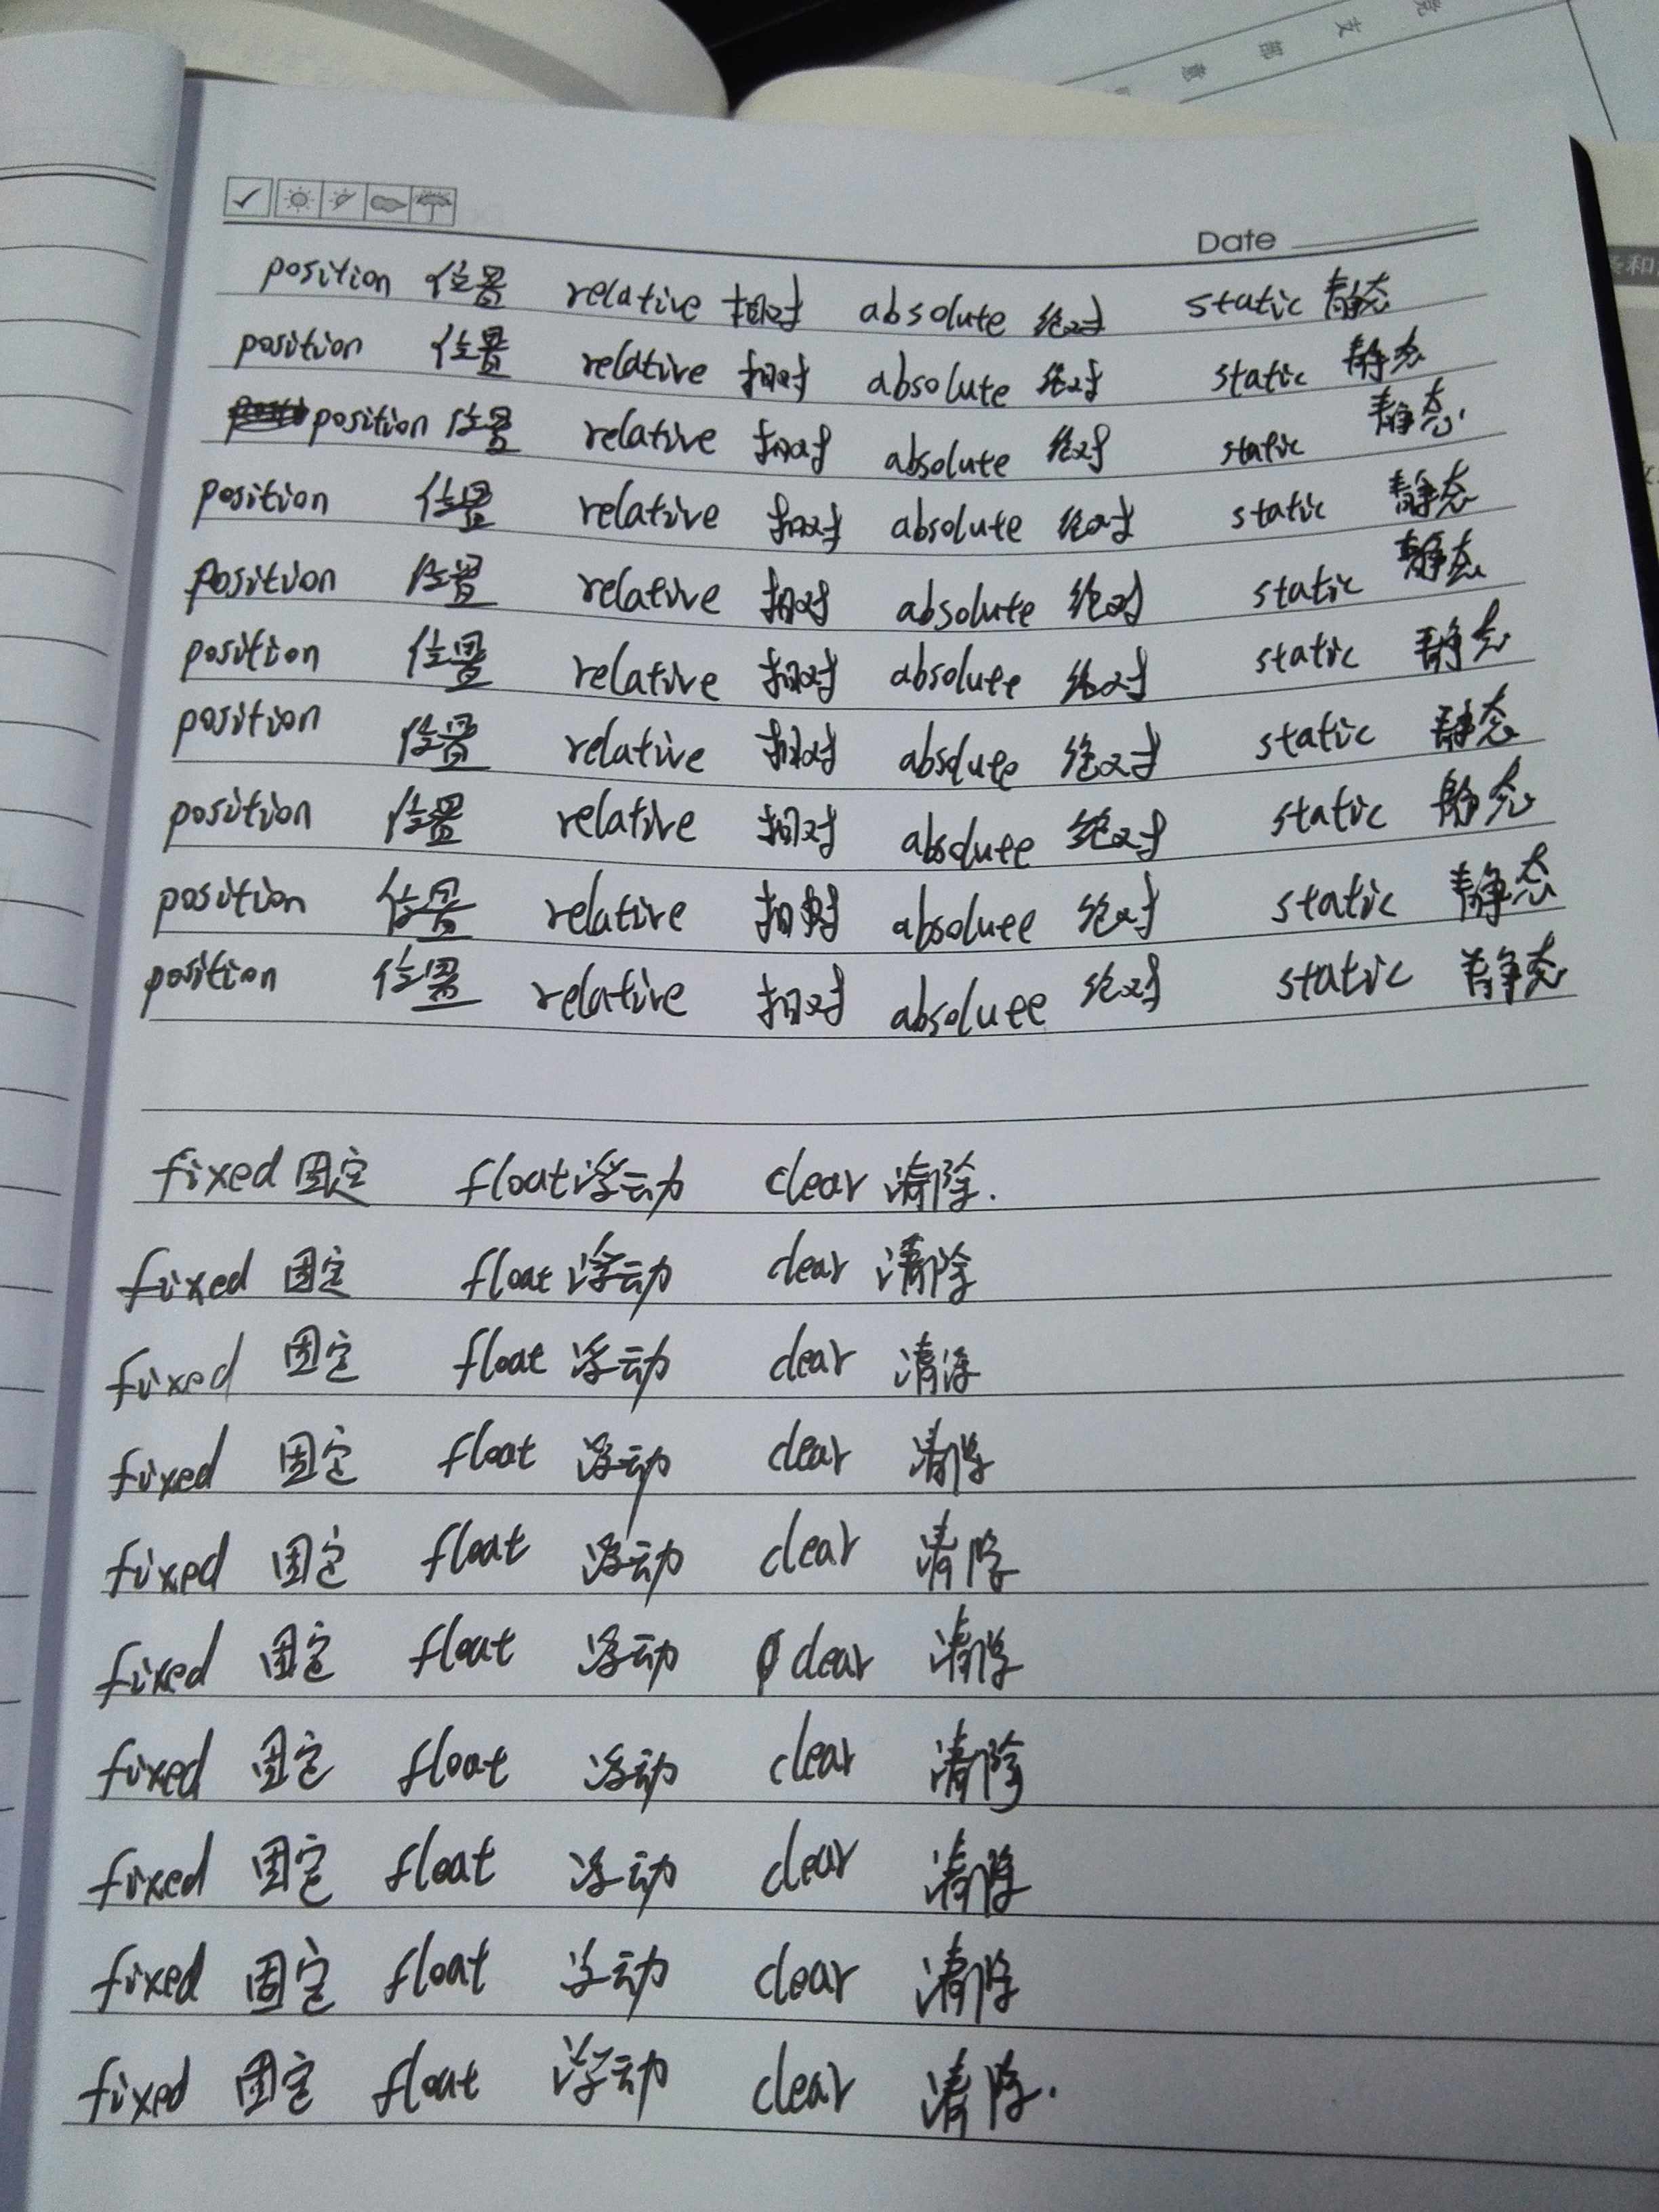 党 支 部 意
Date
position 位置 relative 相对 absolute 绝对 static 静态
position 位置 relative 相对 absolute 绝对 static 静态
position 位置 relative 相对 absolute 绝对 static 静态
position 位置 relative 相对 absolute 绝对 static 静态
position 位置 relative 相对 absolute 绝对 static 静态
position 位置 relative 相对 absolute 绝对 static 静态
position 位置 relative 相对 absolute 绝对 static 静态
position 位置 relative 相对 absolute 绝对 static 静态
position 位置 relative 相对 absolute 绝对 static 静态
position 位置 relative 相对 absolute 绝对 static 静态
fixed 固定 float 浮动 clear 清除.
fixed 固定 float 浮动 clear 清除
fixed 固定 float 浮动 clear 清除
fixed 固定 float 浮动 clear 清除
fixed 固定 float 浮动 clear 清除
fixed 固定 float 浮动 clear 清除
fixed 固定 float 浮动 clear 清除
fixed 固定 float 浮动 clear 清除
fixed 固定 float 浮动 clear 清除
fixed 固定 float 浮动 clear 清除.